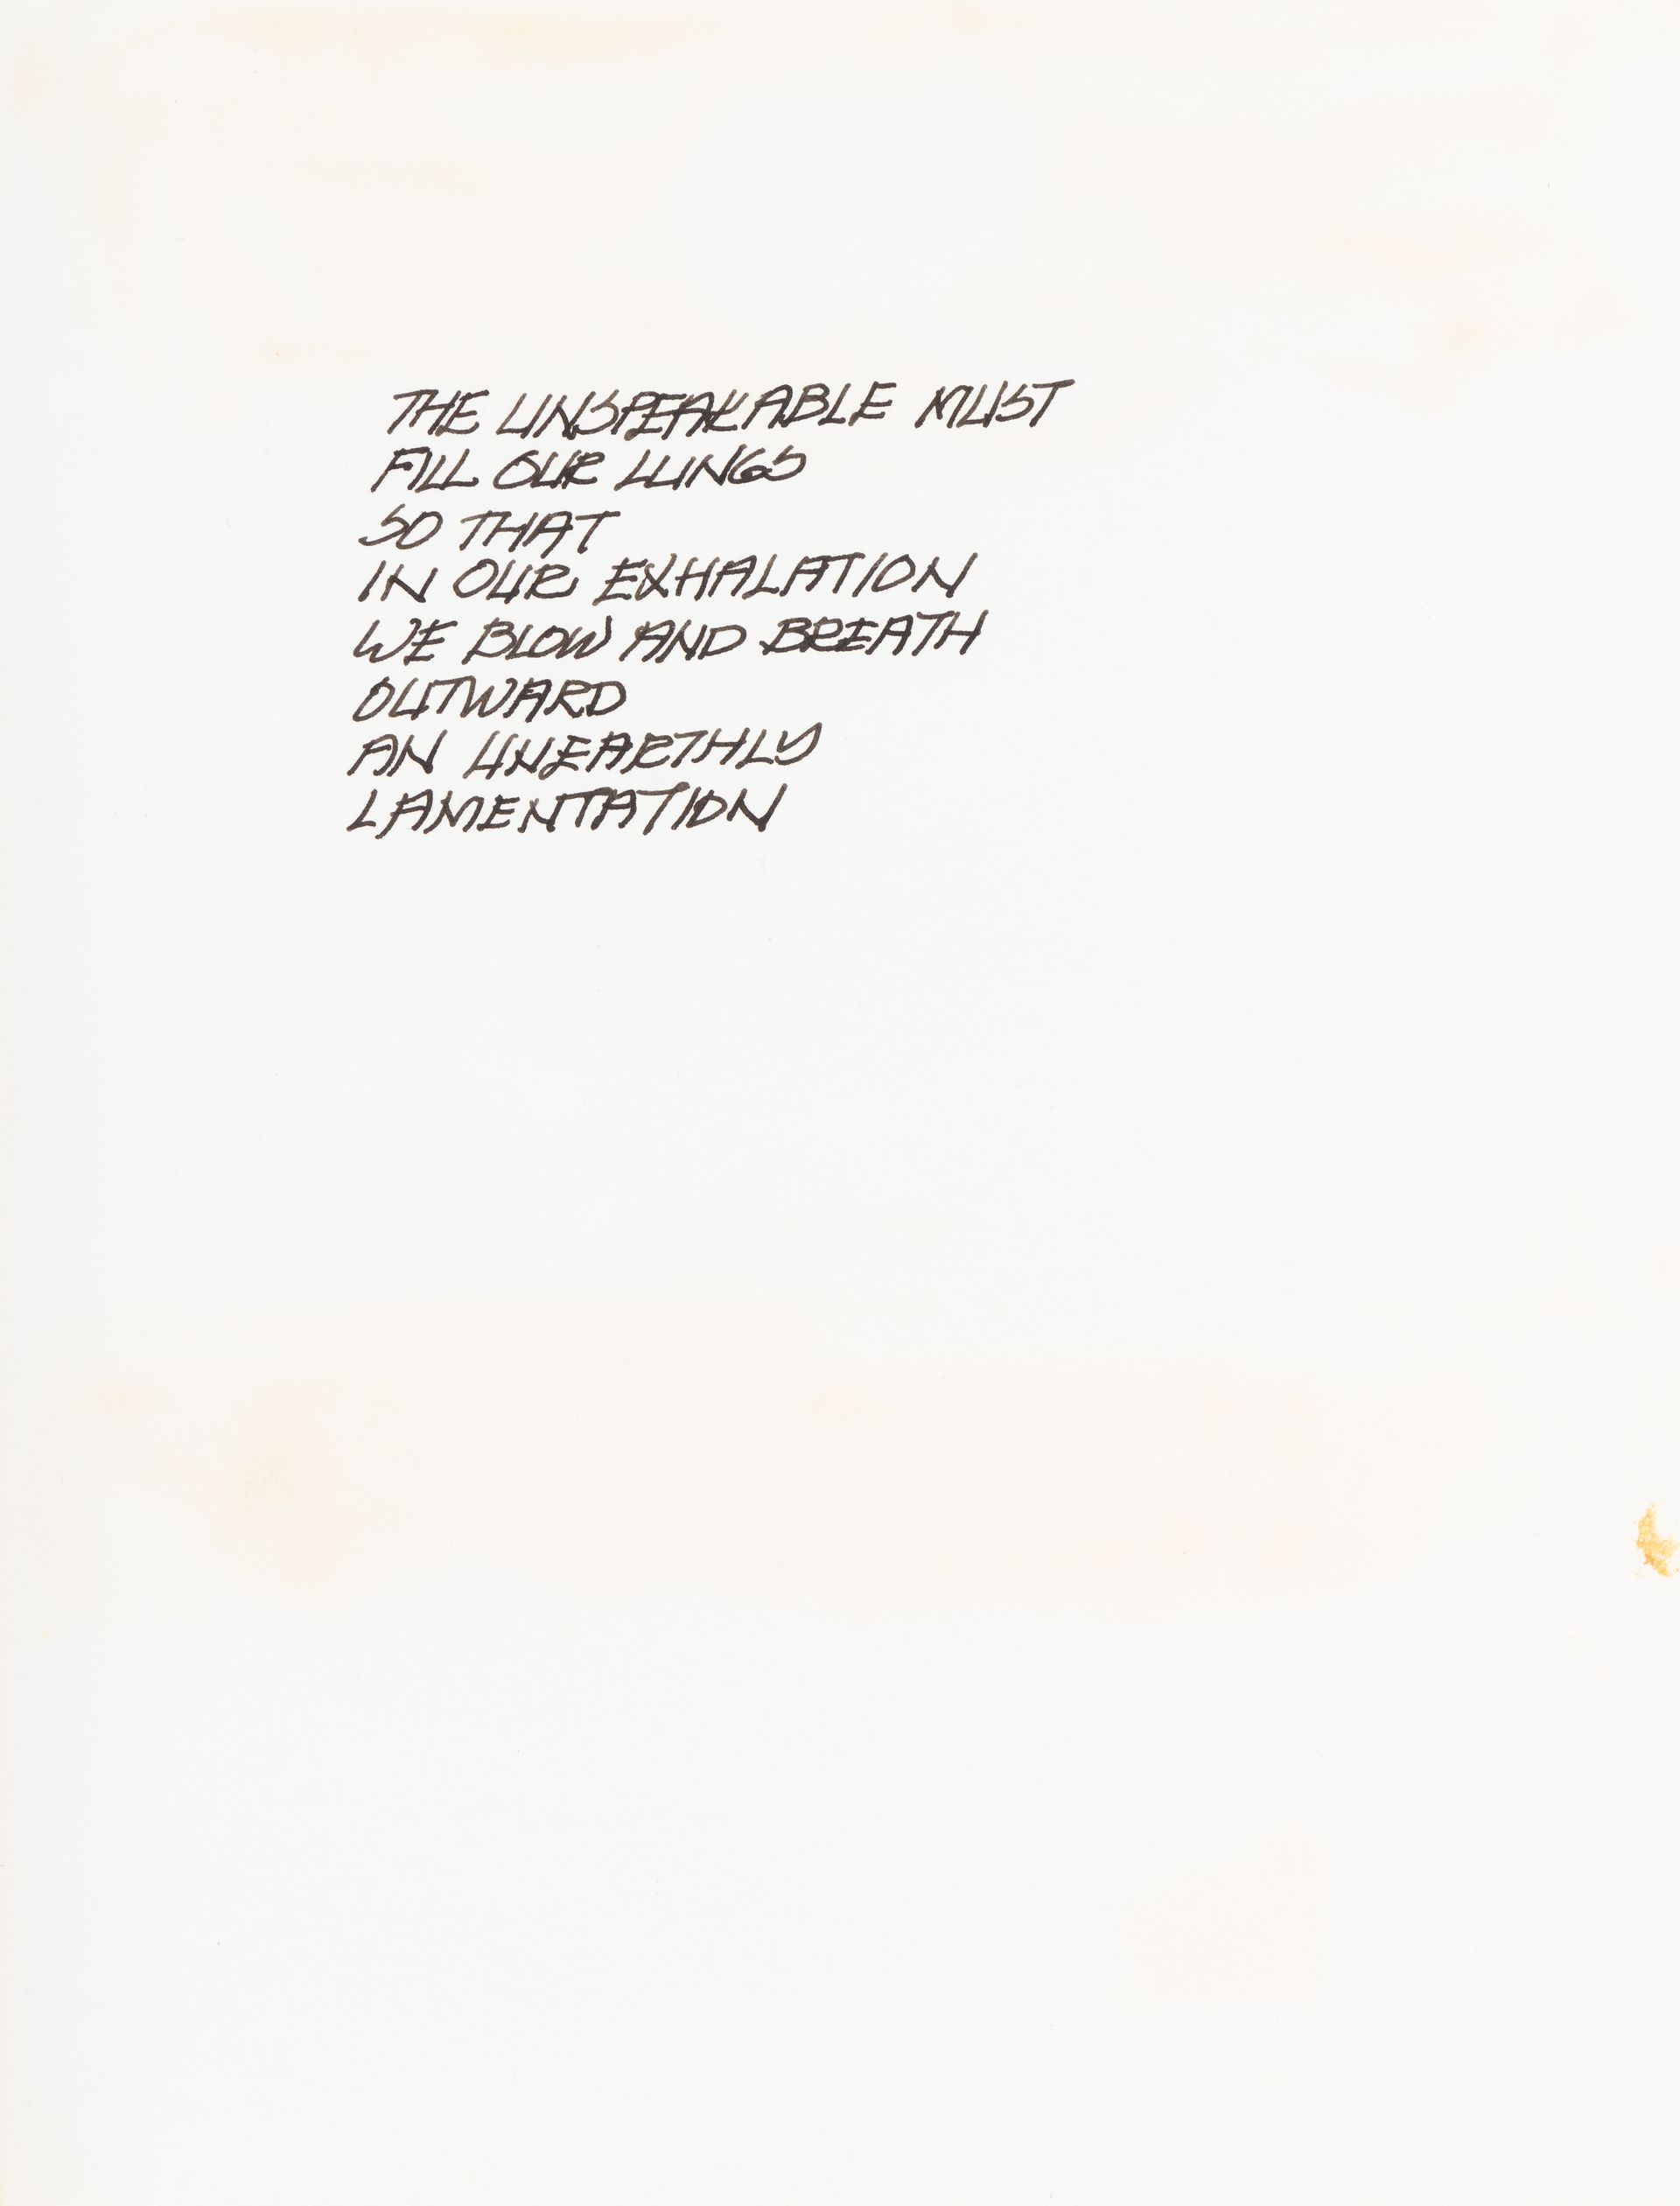 THE UNSPEAKABLE MUST
FILL OUR LUNGS
SO THAT
IN OUR EXHALATION
WE BLOW AND BREATH
OUTWARD
AN UNEARTHLY
LAMENTATION